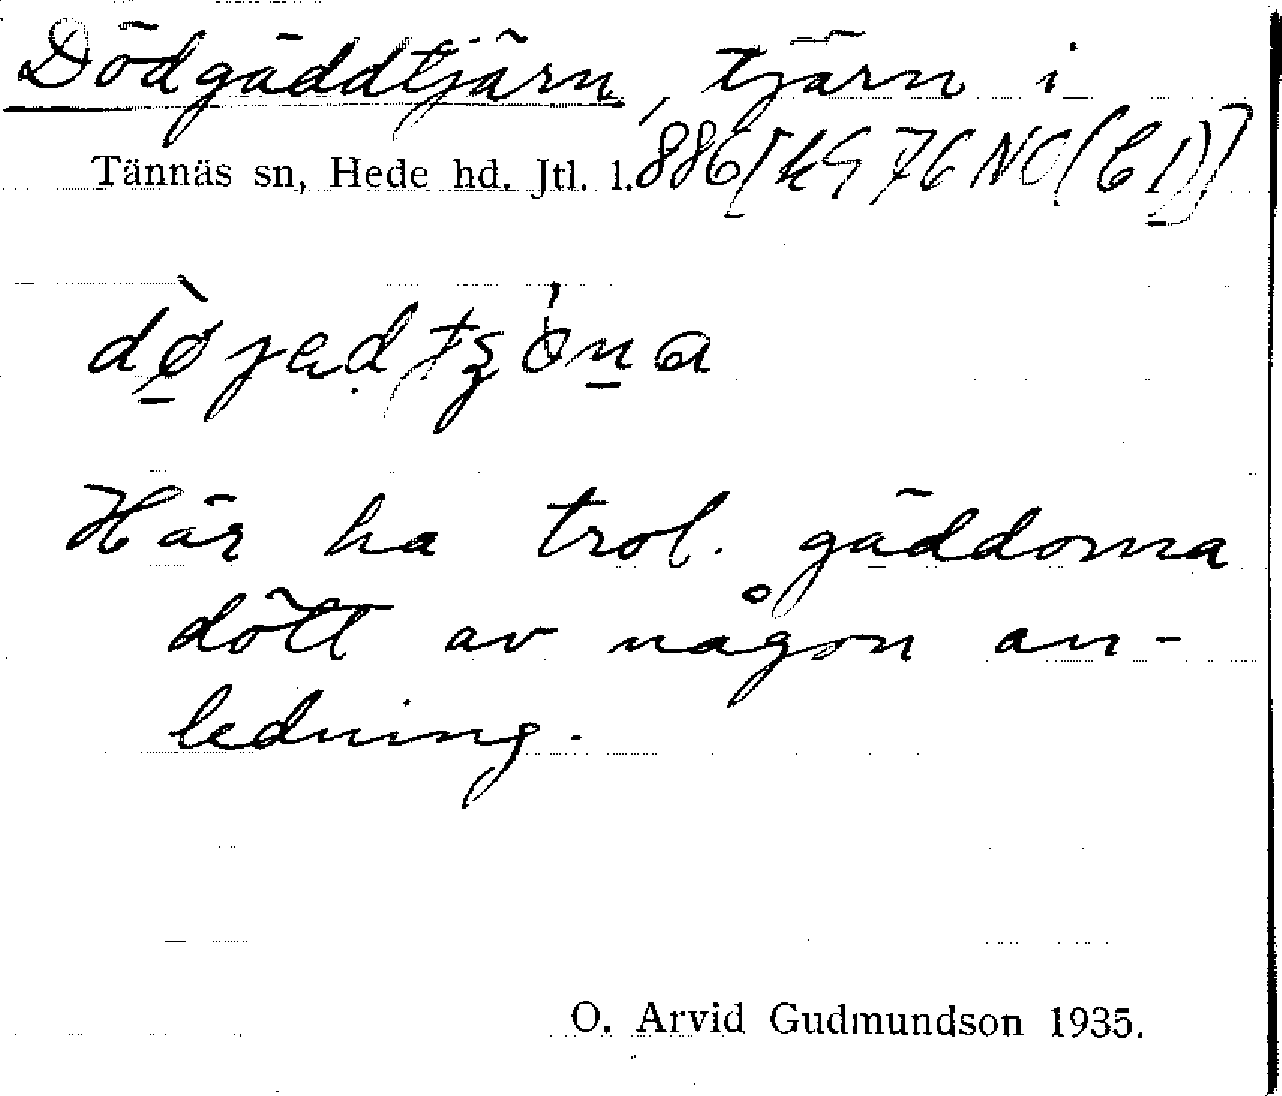 Dödgäddtjärn, tjärn i
Tännäs sn, Hede hd. Jtl. l. 886[KG 76 NO(C1)]
Här ha trol. gäddorna
dött av någon an-
ledning.
O. Arvid Gudmundson 1935.